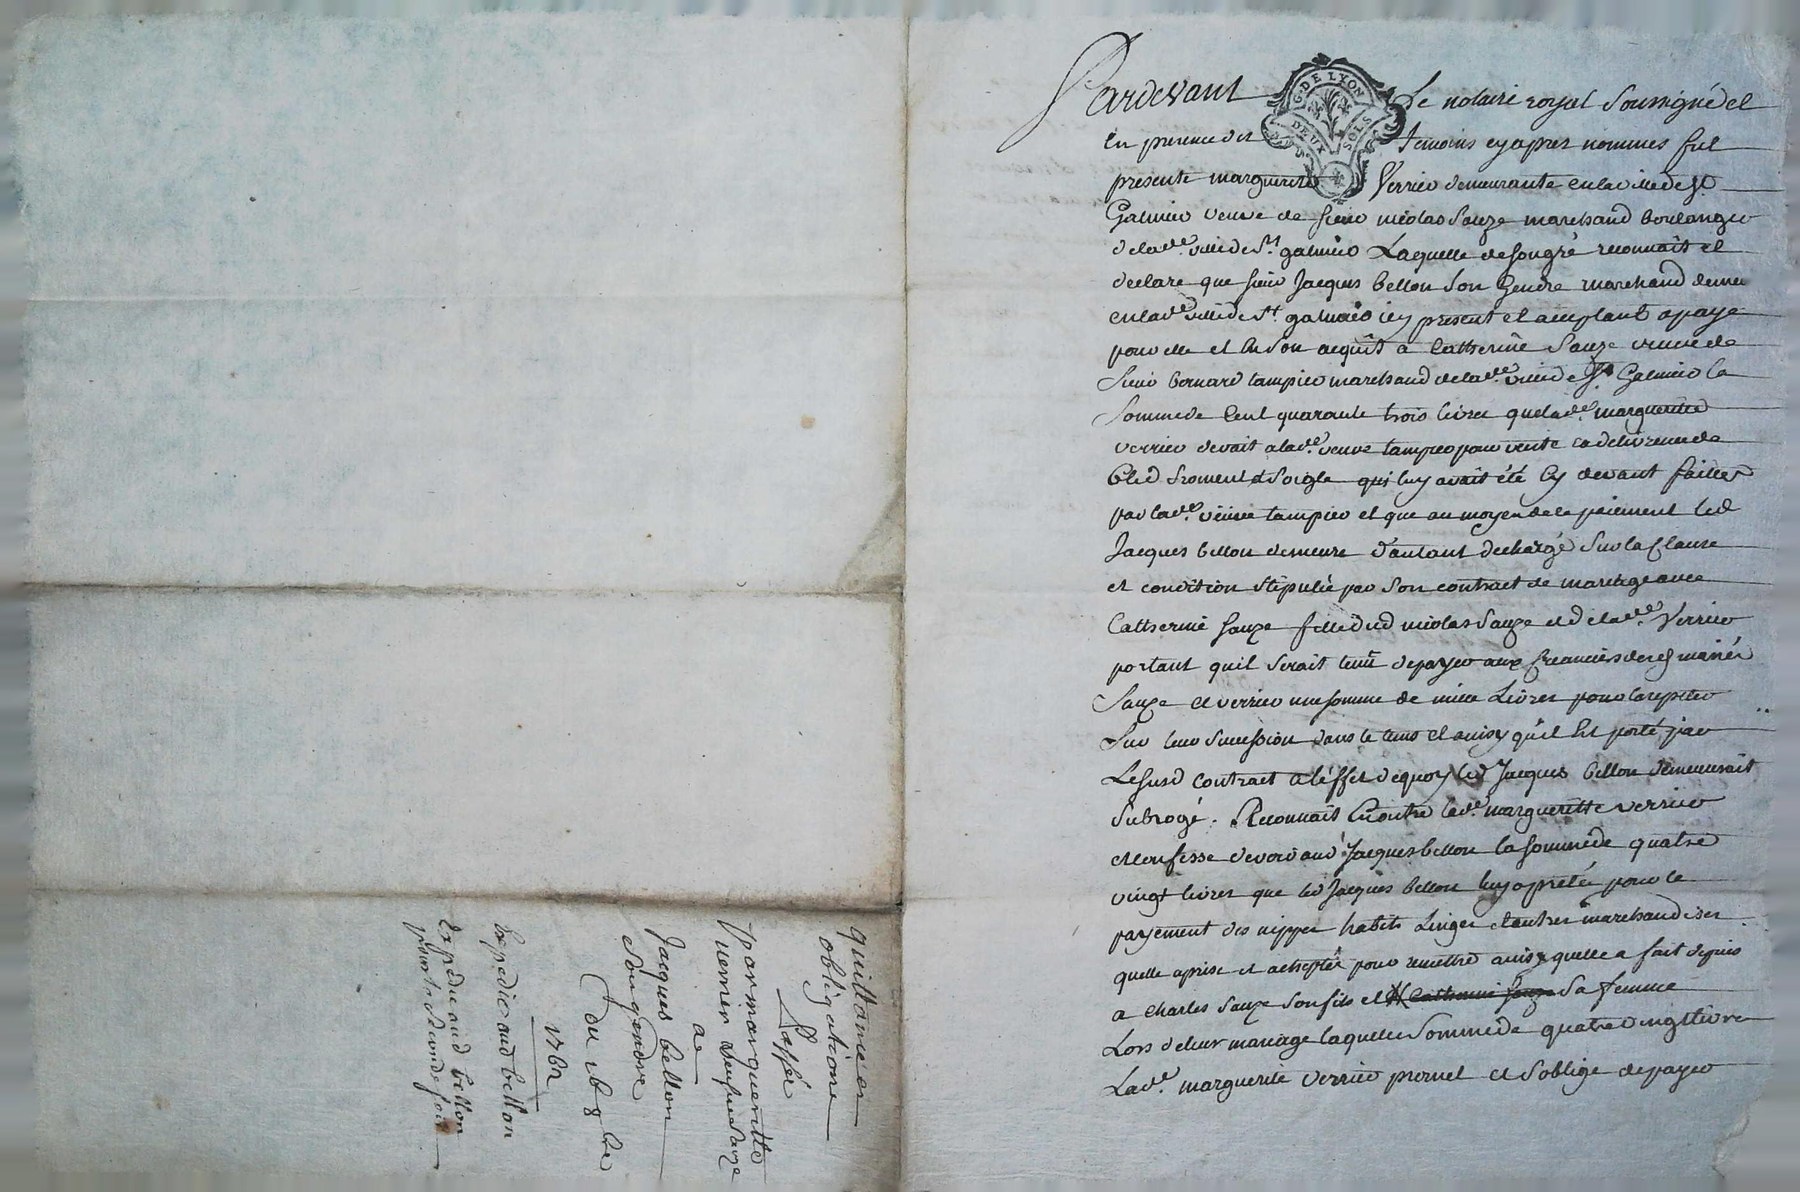 Pardevant Le notaire royal Soussigné et
G. DE LYON
DEUX SOLS
En presence des temoins cy apres nommes fut
presente marguerite Verrier demeurante en la ville de St
Galmier veuve de sieur nicolas Sauze marchand boulanger
de lade ville de St galmier Laquelle de son gré reconnait et
declare que sieur Jacques bellon Son Gendre marchand demeu
en lade ville de St galmier icy present et acceptant a payé
pour elle et En Son acquit a Catherine Sauze veuve de
Sieur bernard tampier marchand de lade ville de St Galmier la
Somme de Cent quarante trois livres que lade marguerite
verrier devait a lade veuve tampier pour vente et delivrance de
bled froment et Soigle qui luy avait été Cy devant faittes
par lade veuve tampier et que au moyen de ce paiement led
Jacques bellon demeure d'autant dechargé Sur la Clause
et condition stipulée par Son contract de mariage avec
Catherine Sauze fille dud nicolas Sauze et de lade Verrier
portant quil Serait tenu de payer aux Creanciers desd mariés
Sauze et verrier une somme de mille Livres pour
Sur leur Succession dans le tems et ainsy qu'il Est porté par
Lesusd contract a l'effet dequoy led Jacques bellon demeurerait
Subrogé. Reconnait En outre lade marguerite verrier
et confesse devoir aud Jacques bellon la somme de quatre
vingt livres que led Jacques bellon luy a pretée pour le
payement des nippes habits Linges et autres marchandises
quelle a prise et acheptée pour remettre ainsy quelle a fait depuis
a Charles Sauze Son fils et Catherine Sauze Sa femme
Lors de leur mariage laquelle Somme de quatre vingt livres
Lade marguerite verrier promet et s'oblige de payer
quittance et
obligations
Passée
par margueritte
verrier veuve Sauze
a
Jacques bellon
Son gendre
Du 16 8bre
1762
Expedié aud bellon
Expedié aud bellon
pour la Seconde fois